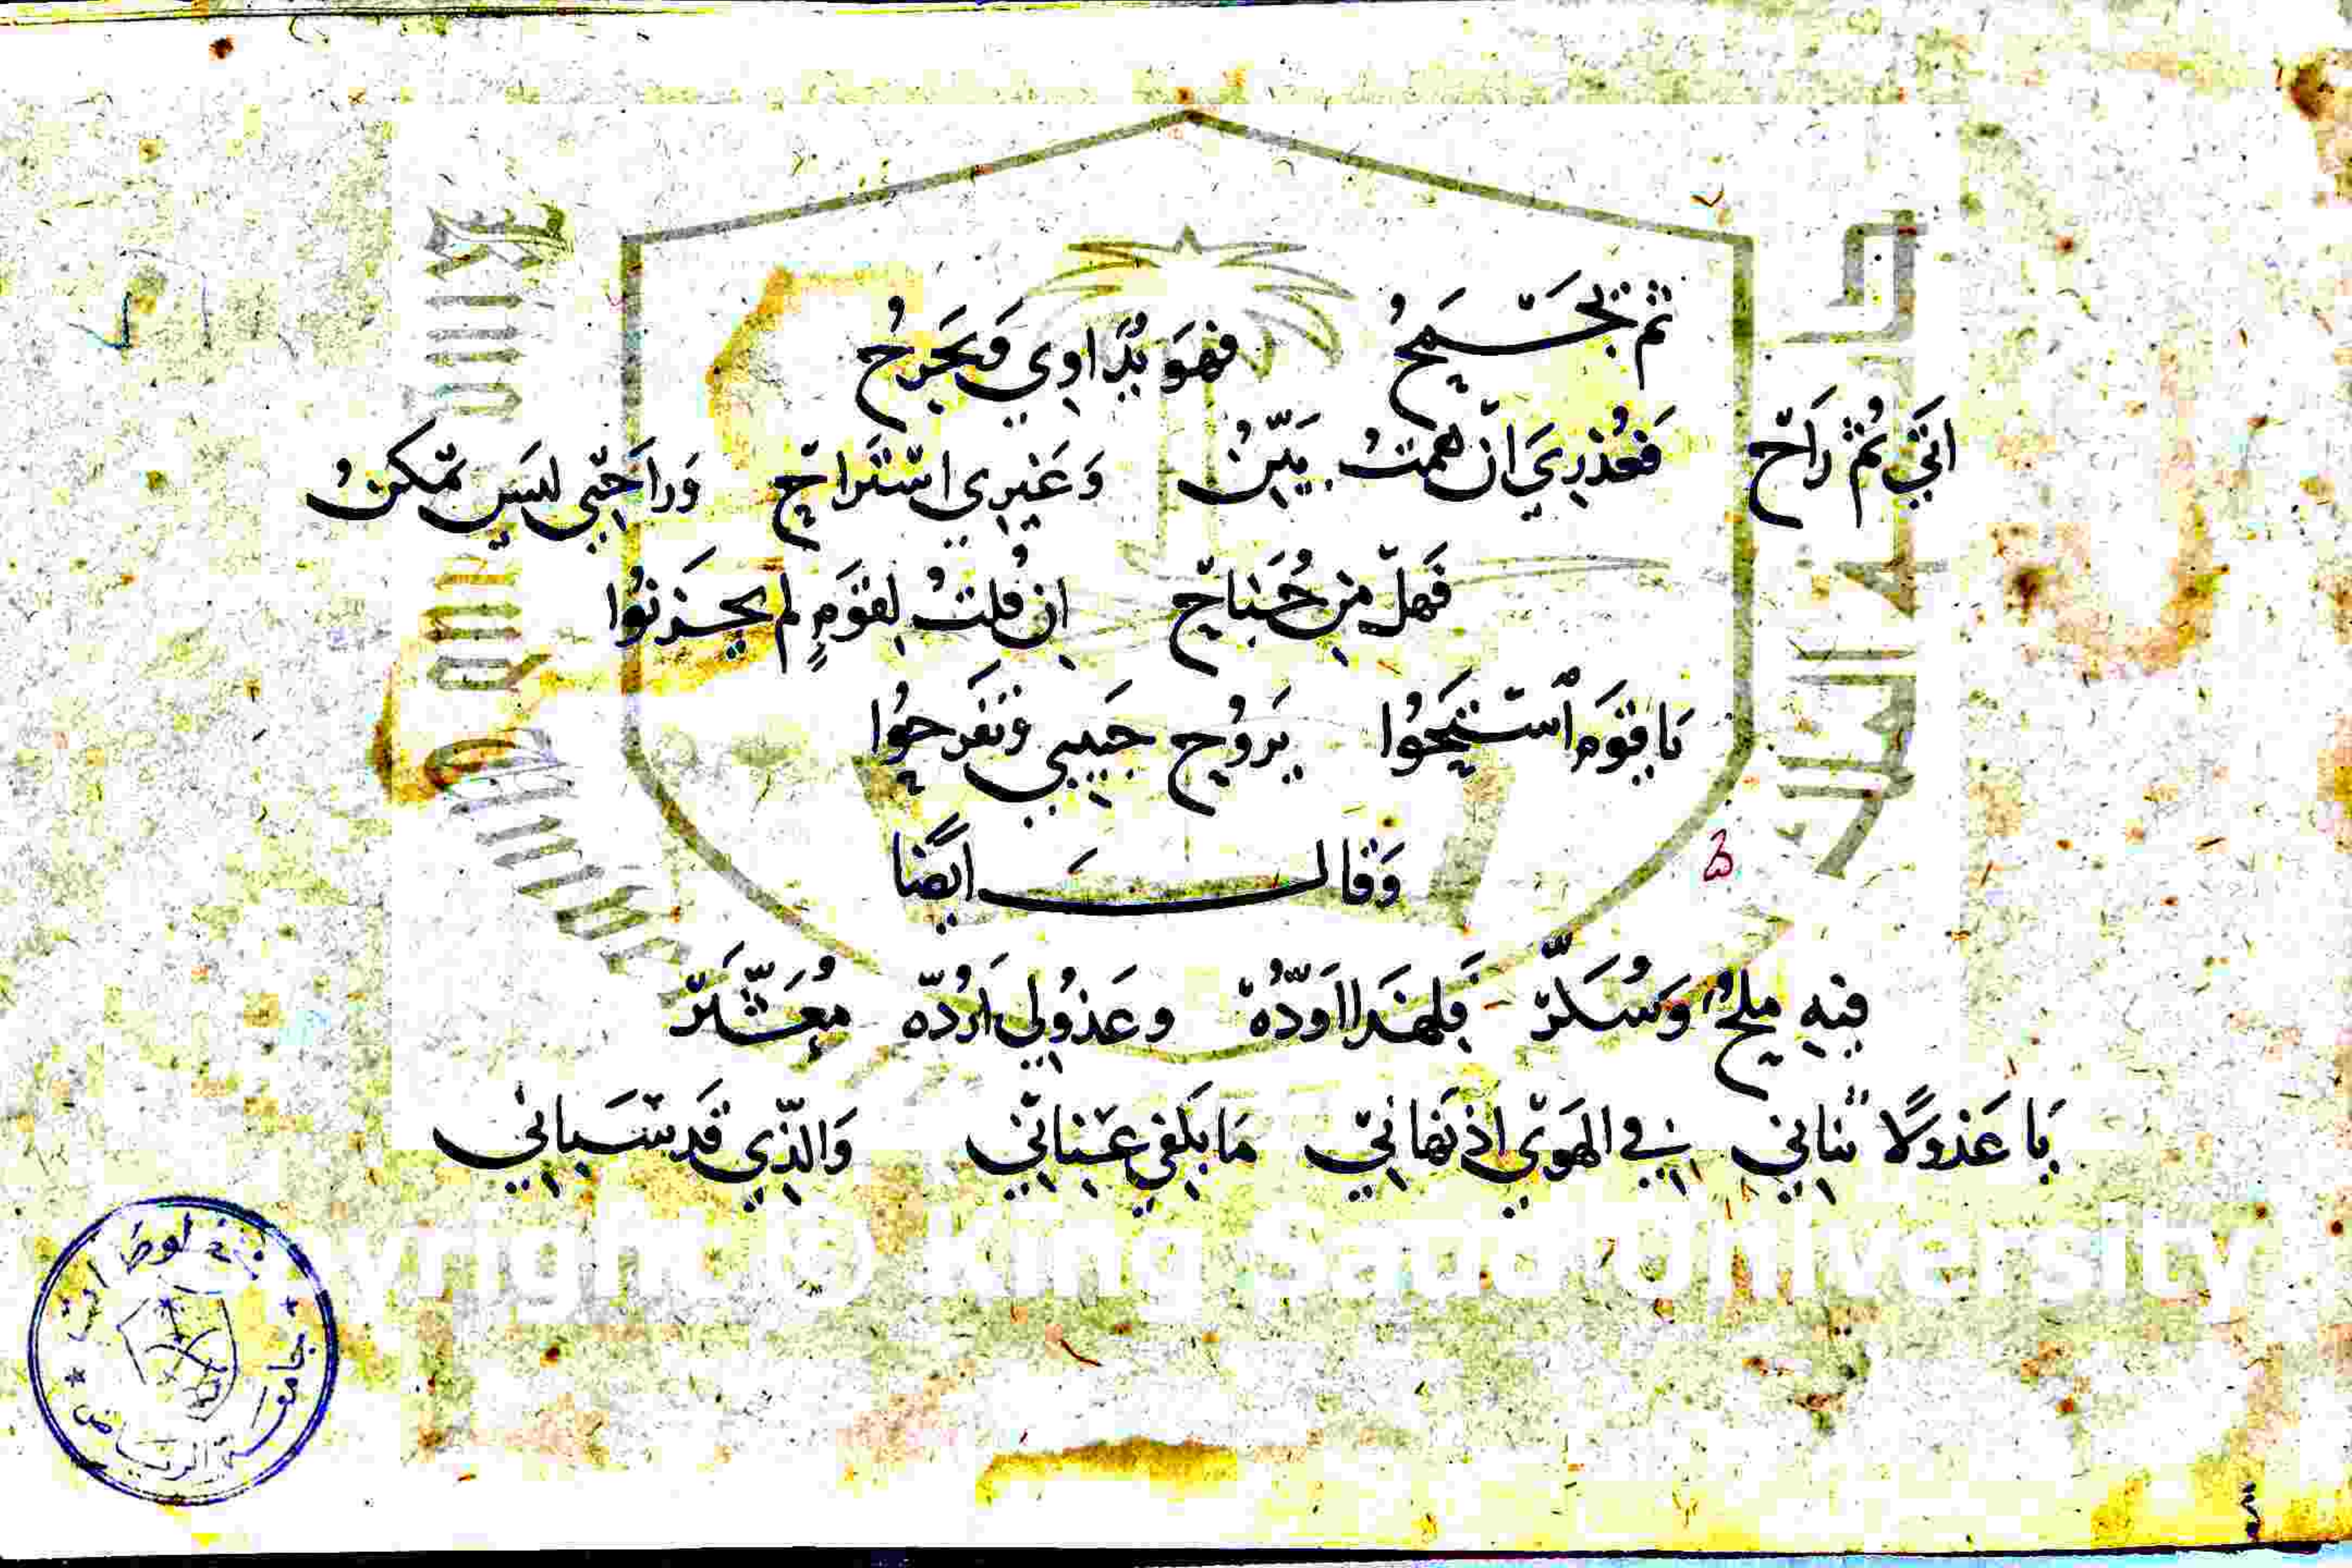 ثم تجسيمح فهو يداوي ويجرح
اتي ثم راح فعذري ان همت بين وغيري استراح وراحتي ليس تمكن
فهل من جناح ان قلت لقوم لم يحزنوا
يا قوم استبيحوا بروح حبيبي وتفرحوا
وقال ايضا
فيه ملح وسكر فلهذا اوده وعذولي ارده معثر
يا عذولا تناني في الهوي اذ نهاني ما يكفي عناني والذي قد سباني
جامعة الرياض
Copyright © King Saud University